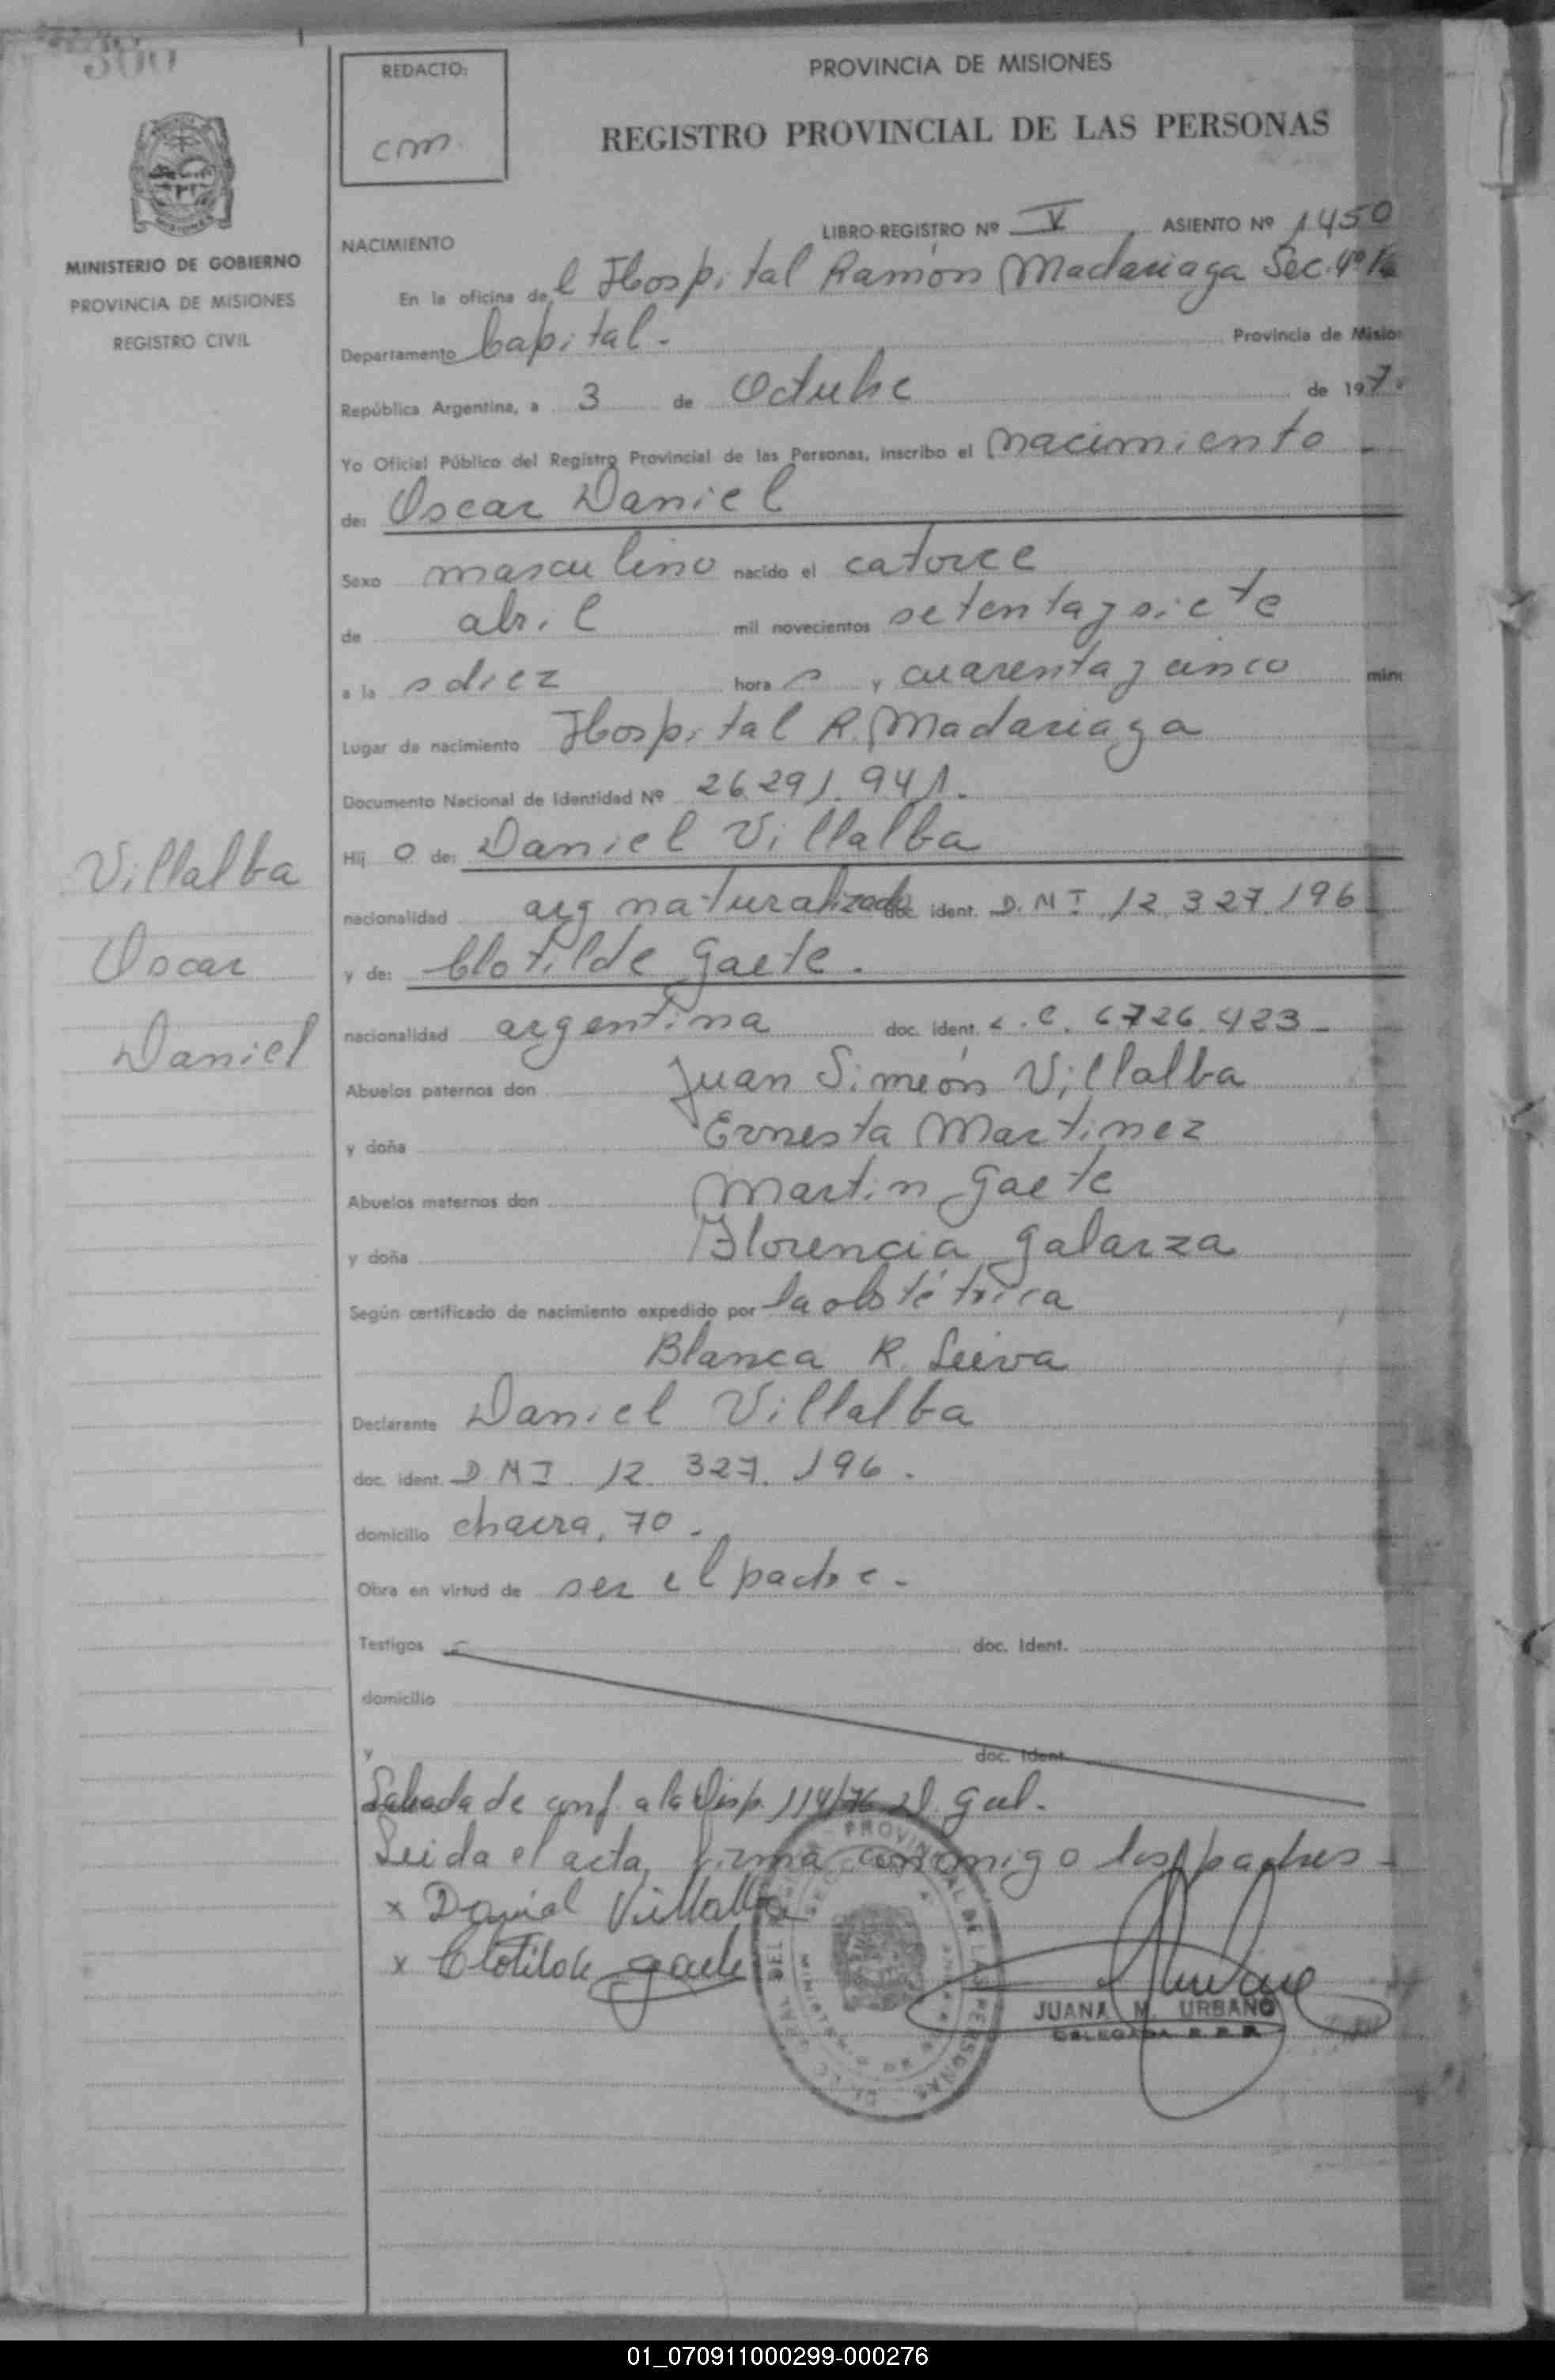 300
REDACTO:
cm.
PROVINCIA DE MISIONES
REGISTRO PROVINCIAL DE LAS PERSONAS
MINISTERIO DE GOBIERNO
PROVINCIA DE MISIONES
REGISTRO CIVIL
NACIMIENTO
LIBRO REGISTRO Nº V ASIENTO Nº 1450
En la oficina del Hospital Ramón Madariaga Sec. 4º
Departamento Capital.- Provincia de Misio
República Argentina, a 3 de Octubre de 197
Yo Oficial Público del Registro Provincial de las Personas, inscribo el nacimiento
de: Oscar Daniel
Sexo masculino nacido el catorce
de abril mil novecientos setenta y siete
a la s diez hora s y cuarenta y cinco min
Lugar de nacimiento Hospital R. Madariaga
Documento Nacional de Identidad Nº 26.291.941.
Hij o de: Daniel Villalba
nacionalidad arg naturalizado doc. ident. D.N.I 12.327.196
y de: Clotilde Gaete.
nacionalidad argentina doc. ident. L.C. 6726.423
Abuelos paternos don Juan Simeón Villalba
y doña Ernesta Martinez
Abuelos maternos don Martin Gaete
y doña Florencia Galarza
Según certificado de nacimiento expedido por la obstétrica
Blanca R. Leiva
Declarante Daniel Villalba
doc. ident. D N I. 12. 327. 196.
domicilio chacra, 70.
Obra en virtud de ser el padre.-
Testigos doc. Ident.
domicilio
y doc. Ident.
Labrada de conf. a la Disp. 114/76 D. Gral.
Leida el acta, firma conmigo los padres-
x Daniel Villalba
x Clotilde Gaete
JUANA M. URBANO
DELEGADA R.P.P.
Villalba
Oscar
Daniel
01_070911000299-000276